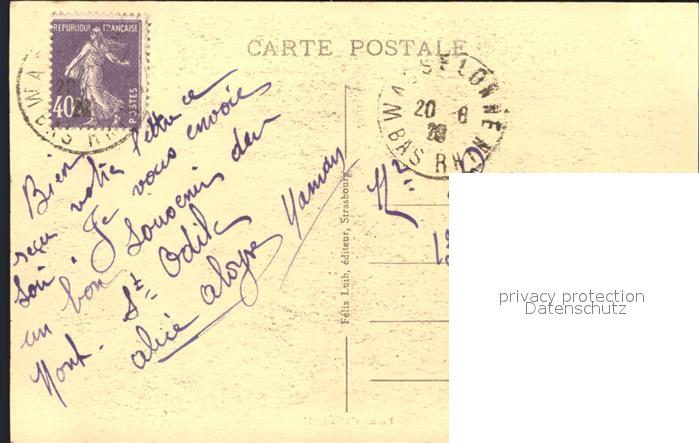 REPUBLIQUE FRANÇAISE
40c
POSTES
CARTE POSTALE
WASSELONNE
20 - 8
28
BAS RHIN
Bien
reçu votre lettre ce
soir. Je vous envoie
un bon souvenir du
Mont. St Odile
alice
Félix Luib, éditeur, Strasbourg
privacy protection
Datenschutz